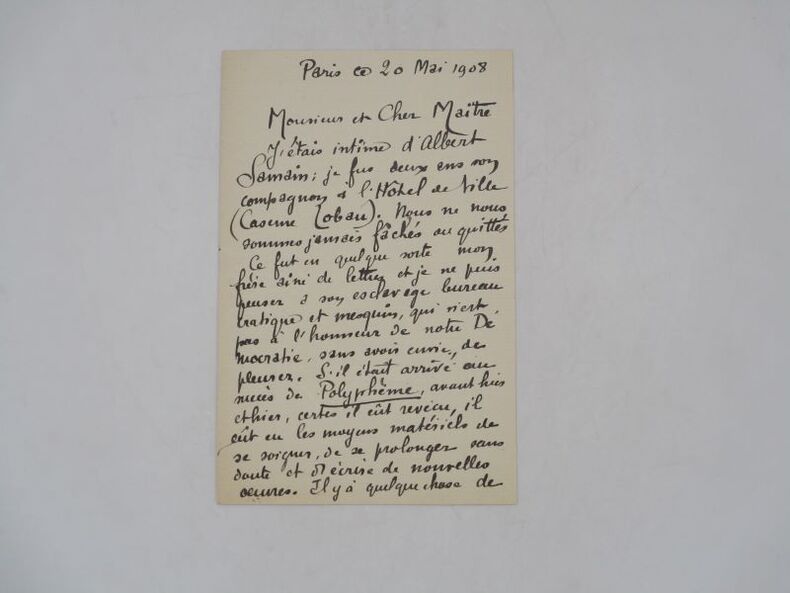 Paris ce 20 Mai 1908
Monsieur et Cher Maître
J'étais intime d'Albert
Samain ; je fus deux ans son
compagnon à l'Hôtel de Ville
(Caserne Lobau). Nous ne nous
sommes jamais fâchés ou quittés
Ce fut en quelque sorte mon
frère aîné de lettres et je ne puis
penser à son esclavage bureau
cratique et mesquin, qui n'est
pas à l'honneur de notre Dé
mocratie, sans avoir envie, de
pleurer. S'il était arrivé au
succès de Polyphême, avant hier
et hier, certes il eût revécu, il
eût eu les moyens matériels de
se soigner, de se prolonger sans
doute et d'écrire de nouvelles
œuvres. Il y à quelque chose de